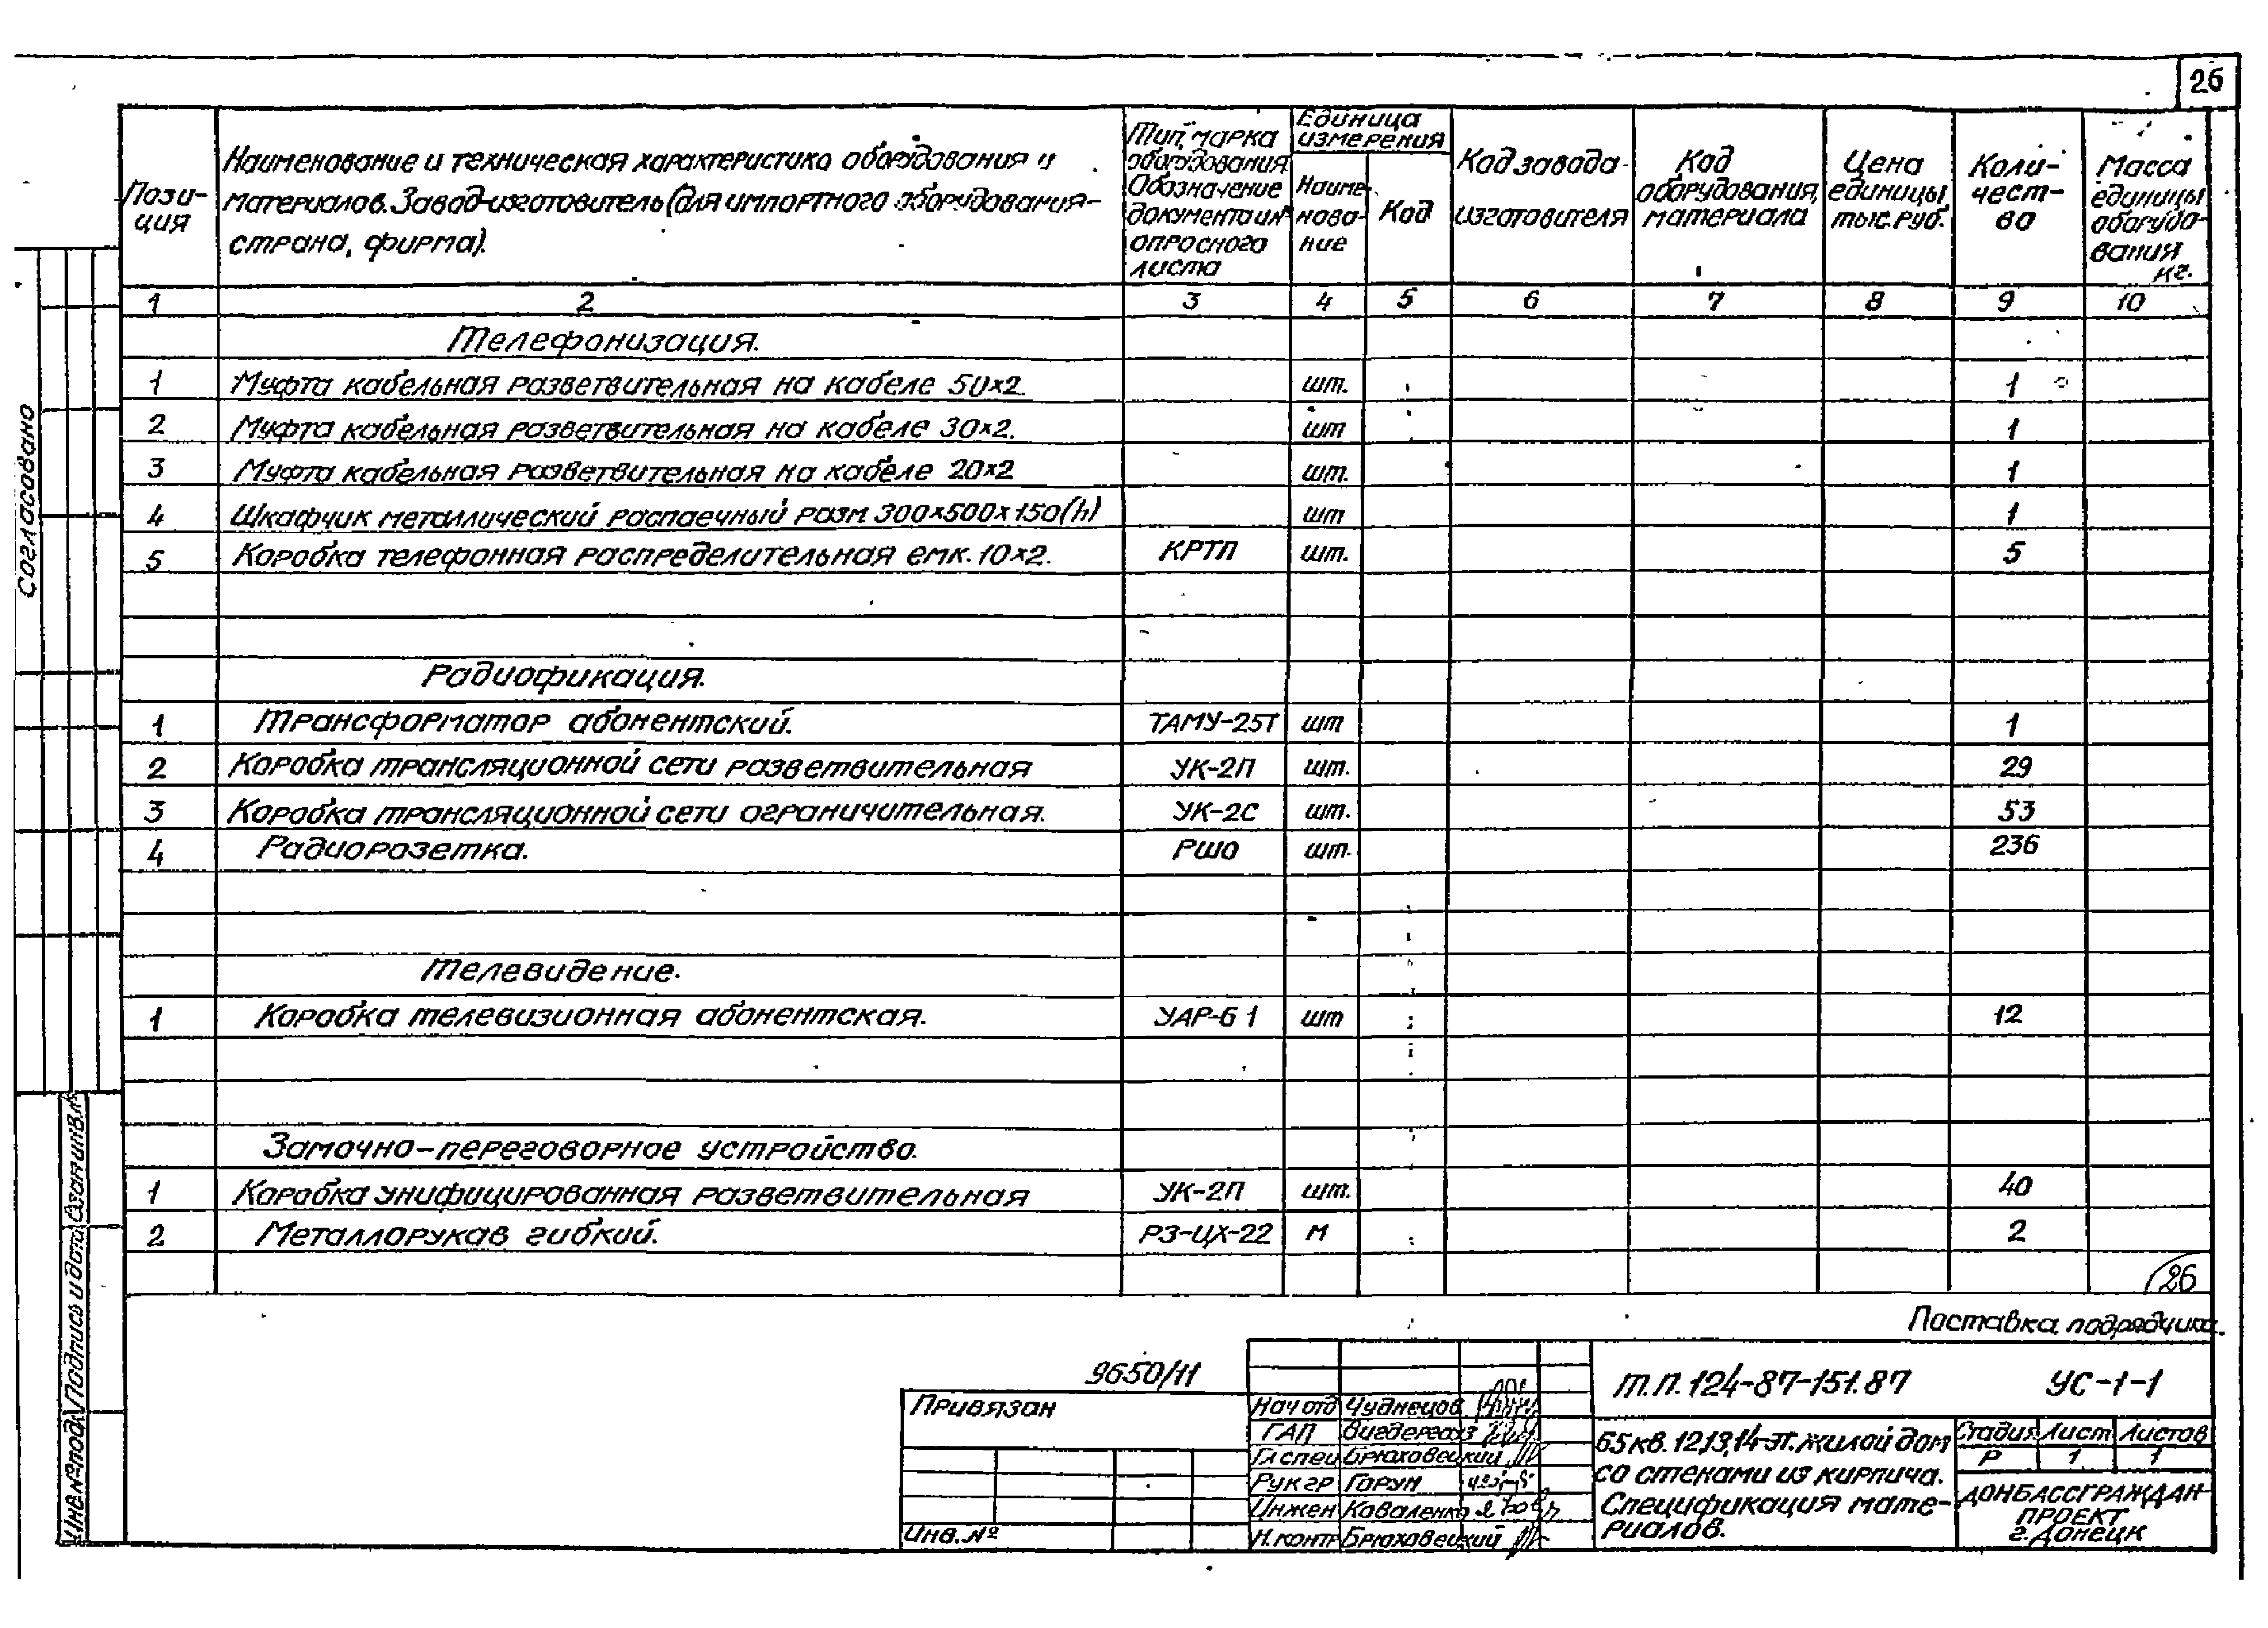 26
Пози-
ция
Наименование и техническая характеристика оборудования и
материалов. Завод-изготовитель (для импортного оборудования-
страна, фирма).
Тип, марка
оборудования
Обозначение
документа или
опросного
листа
Единица
измерения
Наиме-
нова-
ние
Код
Код завода-
изготовителя
Код
оборудования,
материала
Цена
единицы,
тыс. руб.
Коли-
чест-
во
Масса
единицы
оборудо-
вания
кг.
1 2 3 4 5 6 7 8 9 10
Телефонизация.
1 Муфта кабельная разветвительная на кабеле 50×2. шт. 1
2 Муфта кабельная разветвительная на кабеле 30×2. шт 1
3 Муфта кабельная разветвительная на кабеле 20×2 шт. 1
4 Шкафчик металлический распаечный разм 300×500×150(h) шт 1
5 Коробка телефонная распределительная емк. 10×2. КРТП шт. 5
Радиофикация.
1 Трансформатор абонентский. ТАМУ-25Т шт 1
2 Коробка трансляционной сети разветвительная УК-2П шт. 29
3 Коробка трансляционной сети ограничительная. УК-2С шт. 53
4 Радиорозетка. РШО шт. 236
Телевидение.
1 Коробка телевизионная абонентская. УАР-6 1 шт 12
Замочно-переговорное устройство.
1 Коробка унифицированная разветвительная УК-2П шт. 40
2 Металлорукав гибкий. РЗ-ЦХ-22 м 2
26
Поставка подрядчика.
Согласовано
Взам инв. №
Подпись и дата
Инв. № подл.
9650/11
Привязан
Инв. №
Нач отд Чуднецов
ГАП
Гл спец Брюховецкий
Рук гр Горун
Инжен Коваленко
Н. контр Брюховецкий
Т.П. 124-87-151.87 УС-1-1
65 кв. 12,13,14-эт. жилой дом
со стенами из кирпича.
Спецификация мате-
риалов.
Стадия Лист Листов
Р 1 1
ДОНБАССГРАЖДАН-
ПРОЕКТ
г. Донецк